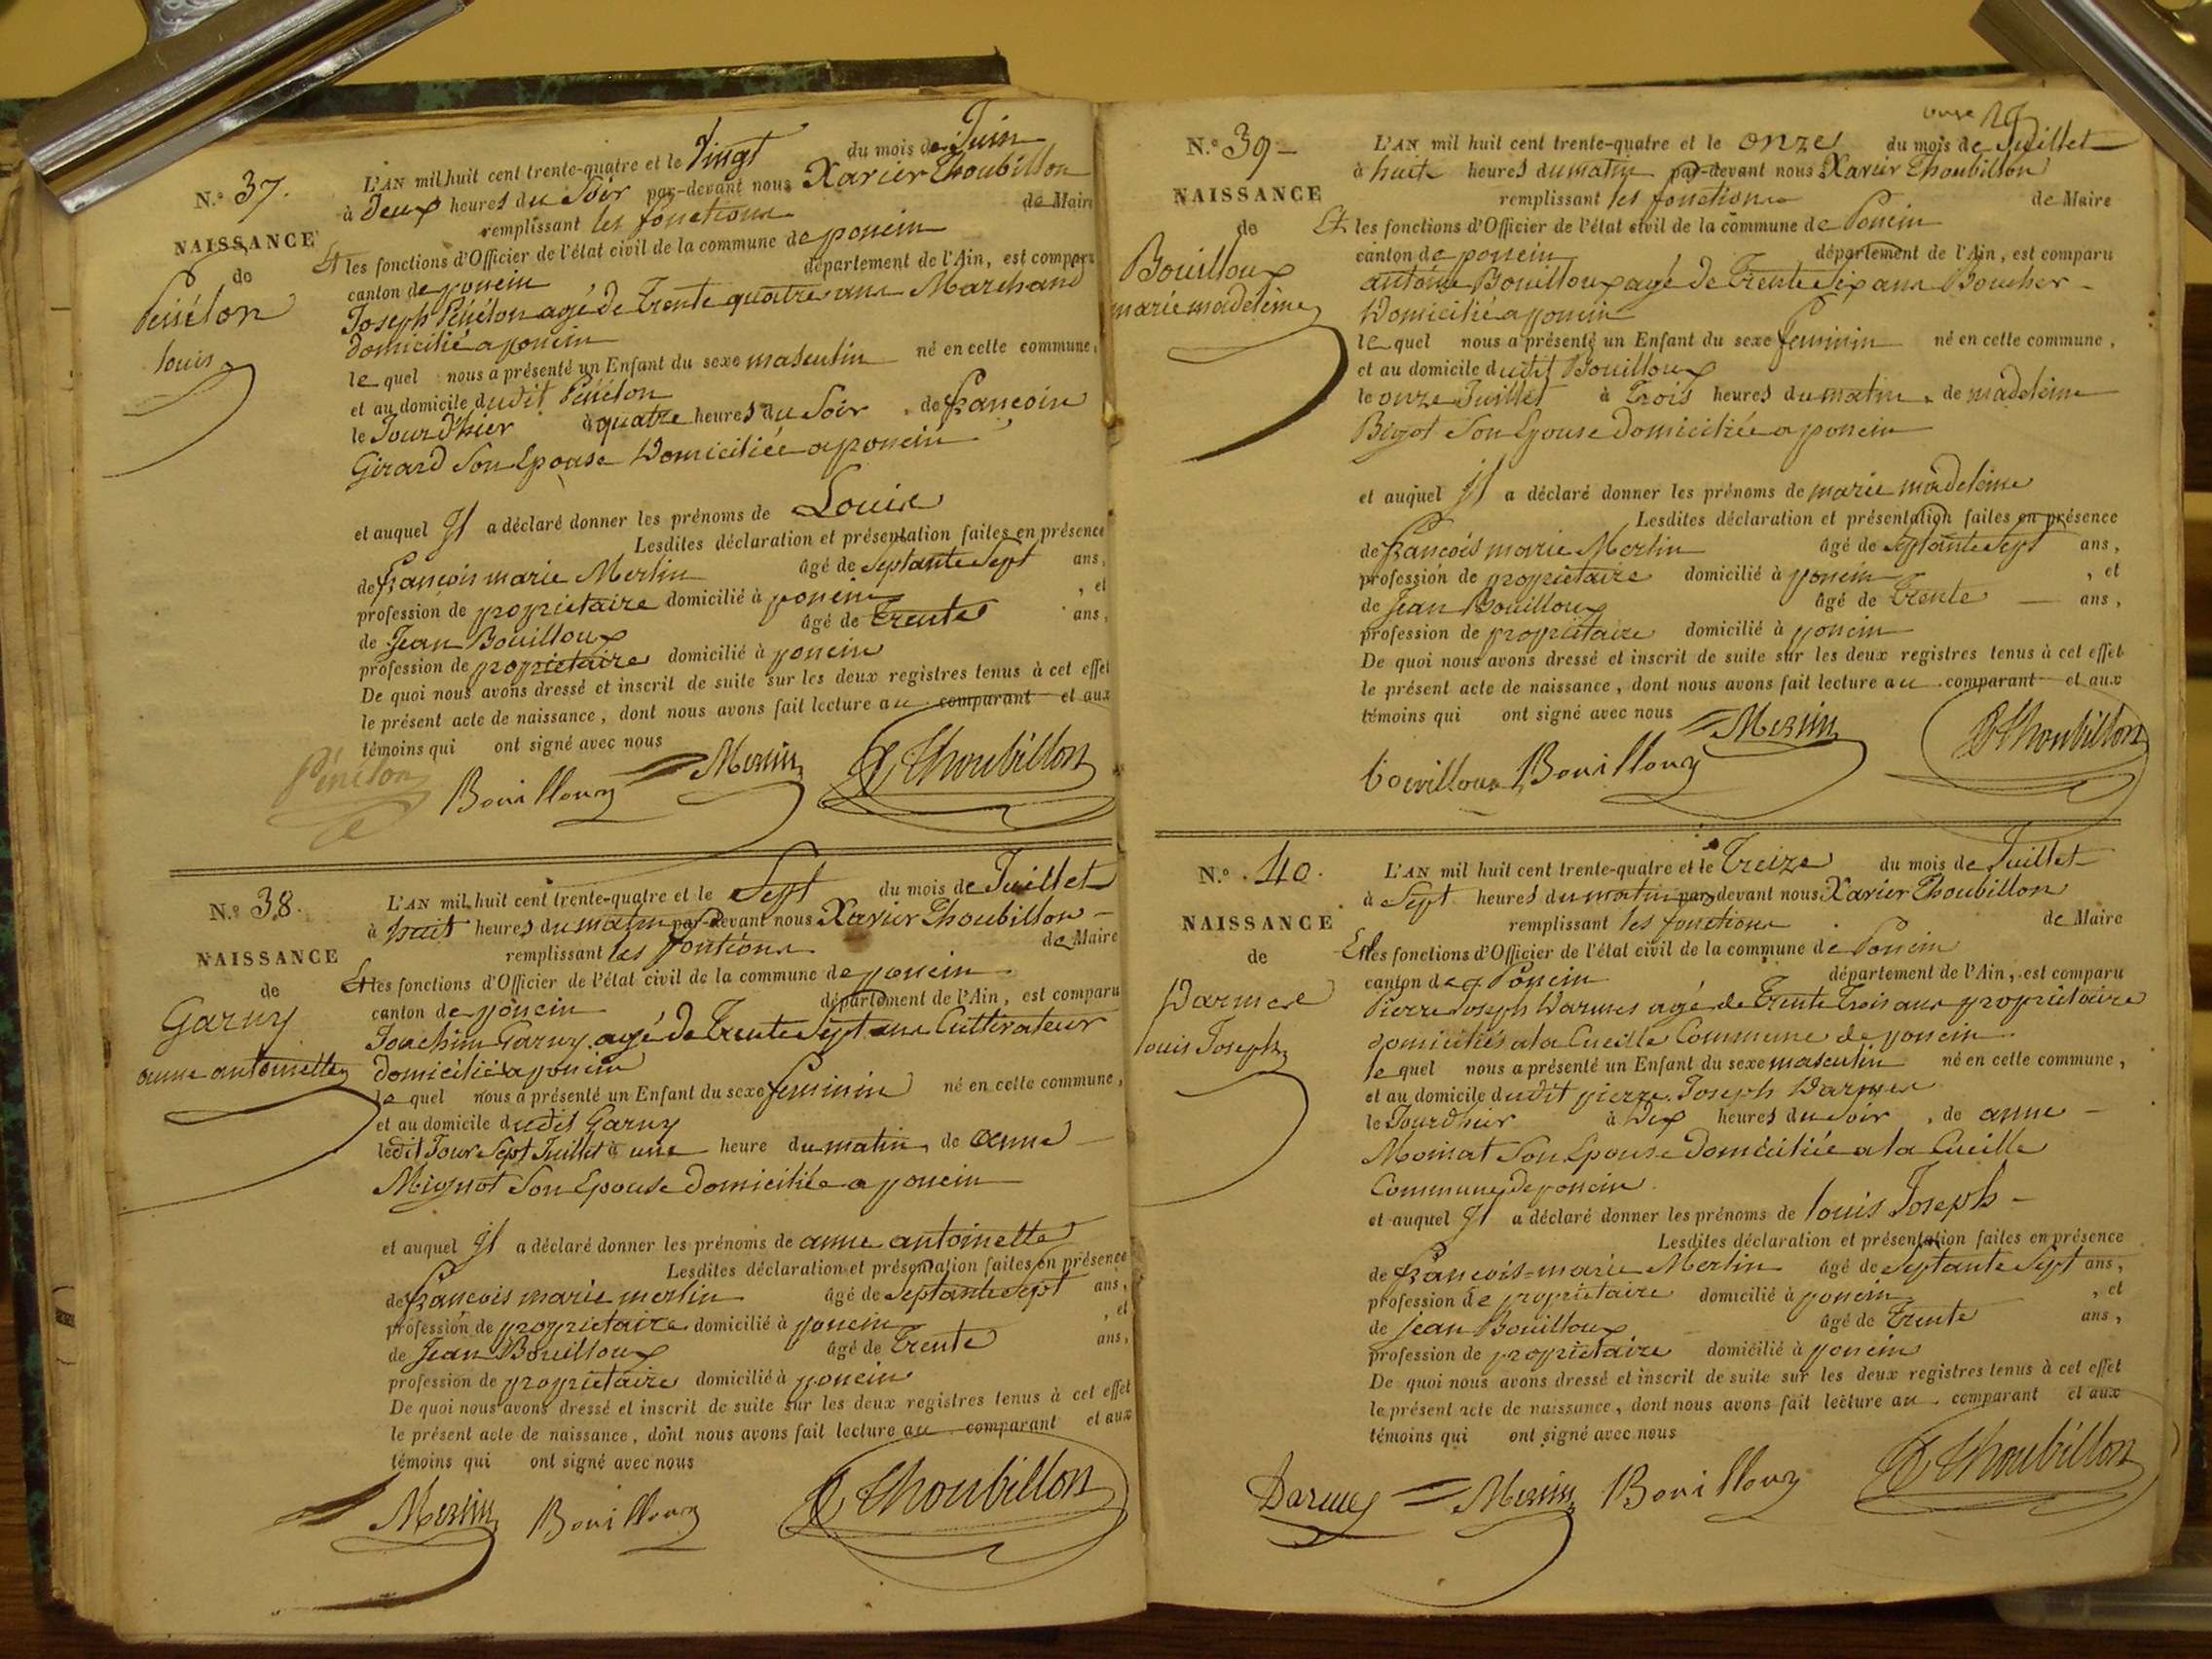 N.° 37.
NAISSANCE
de
Pénélon
louis
L'AN mil huit cent trente-quatre et le Vingt du mois de Juin
à Deux heures du Soir par-devant nous Xavier Thoubillon
remplissant les fonctions de Maire
Et les fonctions d'Officier de l'état civil de la commune de poncin
canton de poncin département de l'Ain, est comparu
Joseph Pénélon agé de Trente quatre ans Marchand
domicilié a poncin
le quel nous a présenté un Enfant du sexe masculin né en cette commune,
et au domicile dudit Pénélon
le Jour d'hier à quatre heures du Soir, de francoise
Girard Son Epouse Domiciliée a poncin
et auquel Il a déclaré donner les prénoms de Louis
Lesdites déclaration et présentation faites en présence
de francois marie Merlin âgé de Septante Sept ans,
profession de propriétaire domicilié à poncin, et
de Jean Bouilloux âgé de Trente ans,
profession de propriétaire domicilié à poncin
De quoi nous avons dressé et inscrit de suite sur les deux registres tenus à cet effet
le présent acte de naissance, dont nous avons fait lecture au comparant et aux
témoins qui ont signé avec nous
Pénélon Bouilloux Merlin X Thoubillon
N.° 38.
NAISSANCE
de
Garny
anne antoinette
L'AN mil huit cent trente-quatre et le Sept du mois de Juillet
à huit heures du matin par-devant nous Xavier Thoubillon
remplissant les fontions de Maire
Et les fonctions d'Officier de l'état civil de la commune de poncin
canton de poncin département de l'Ain, est comparu
Joachim Garny agé de Trente Sept ans Cultivateur
domicilié a poncin
le quel nous a présenté un Enfant du sexe feminin né en cette commune,
et au domicile dudit Garny
ledit Jour Sept Juillet à une heure du matin, de anne
Mignot Son Epouse Domiciliée a poncin
et auquel Il a déclaré donner les prénoms de anne antoinette
Lesdites déclaration et présentation faites en présence
de francois marie merlin âgé de Septante Sept ans,
profession de propriétaire domicilié à poncin, et
de Jean Bouilloux âgé de Trente ans,
profession de propriétaire domicilié à poncin
De quoi nous avons dressé et inscrit de suite sur les deux registres tenus à cet effet
le présent acte de naissance, dont nous avons fait lecture au comparant et aux
témoins qui ont signé avec nous
Merlin Bouilloux X Thoubillon
onze 19
N.° 39
NAISSANCE
de
Bouilloux
marie madeleine
L'AN mil huit cent trente-quatre et le onze du mois de Juillet
à huit heures du matin par-devant nous Xavier Thoubillon
remplissant les fonctions de Maire
Et les fonctions d'Officier de l'état civil de la commune de Poncin
canton de poncin département de l'Ain, est comparu
antoine Bouilloux agé de Trente Six ans Boucher
Domicilié a poncin
le quel nous a présenté un Enfant du sexe feminin né en cette commune,
et au domicile dudit Bouilloux
le onze Juillet à Trois heures du matin, de madeleine
Bigot Son Epouse Domiciliée a poncin
et auquel Il a déclaré donner les prénoms de marie madeleine
Lesdites déclaration et présentation faites en présence
de francois marie Merlin âgé de Septante Sept ans,
profession de propriétaire domicilié à poncin, et
de Jean Bouilloux âgé de Trente ans,
profession de propriétaire domicilié à poncin
De quoi nous avons dressé et inscrit de suite sur les deux registres tenus à cet effet
le présent acte de naissance, dont nous avons fait lecture au comparant et aux
témoins qui ont signé avec nous Merlin X Thoubillon
bouilloux Bouilloux
N.° 40.
NAISSANCE
de
Darmes
louis Joseph
L'AN mil huit cent trente-quatre et le Treize du mois de Juillet
à Sept heures du matin par-devant nous Xavier Thoubillon
remplissant les fonctions de Maire
Et les fonctions d'Officier de l'état civil de la commune de Poncin
canton de Poncin département de l'Ain, est comparu
Pierre Joseph Darmes agé de Trente Trois ans propriétaire
domiciliés a la Cueille Commune de poncin
le quel nous a présenté un Enfant du sexe masculin né en cette commune,
et au domicile dudit pierre Joseph Darmes
le Jour d'hier à Dix heures du Soir, de anne
Moinat Son Epouse Domiciliée a la Cueille
Commune de poncin
et auquel Il a déclaré donner les prénoms de louis Joseph
Lesdites déclaration et présentation faites en présence
de francois-marie Merlin âgé de Septante Sept ans,
profession de propriétaire domicilié à poncin, et
de jean Bouilloux âgé de Trente ans,
profession de propriétaire domicilié à poncin
De quoi nous avons dressé et inscrit de suite sur les deux registres tenus à cet effet
le présent acte de naissance, dont nous avons fait lecture au comparant et aux
témoins qui ont signé avec nous
Darmes Merlin Bouilloux X Thoubillon